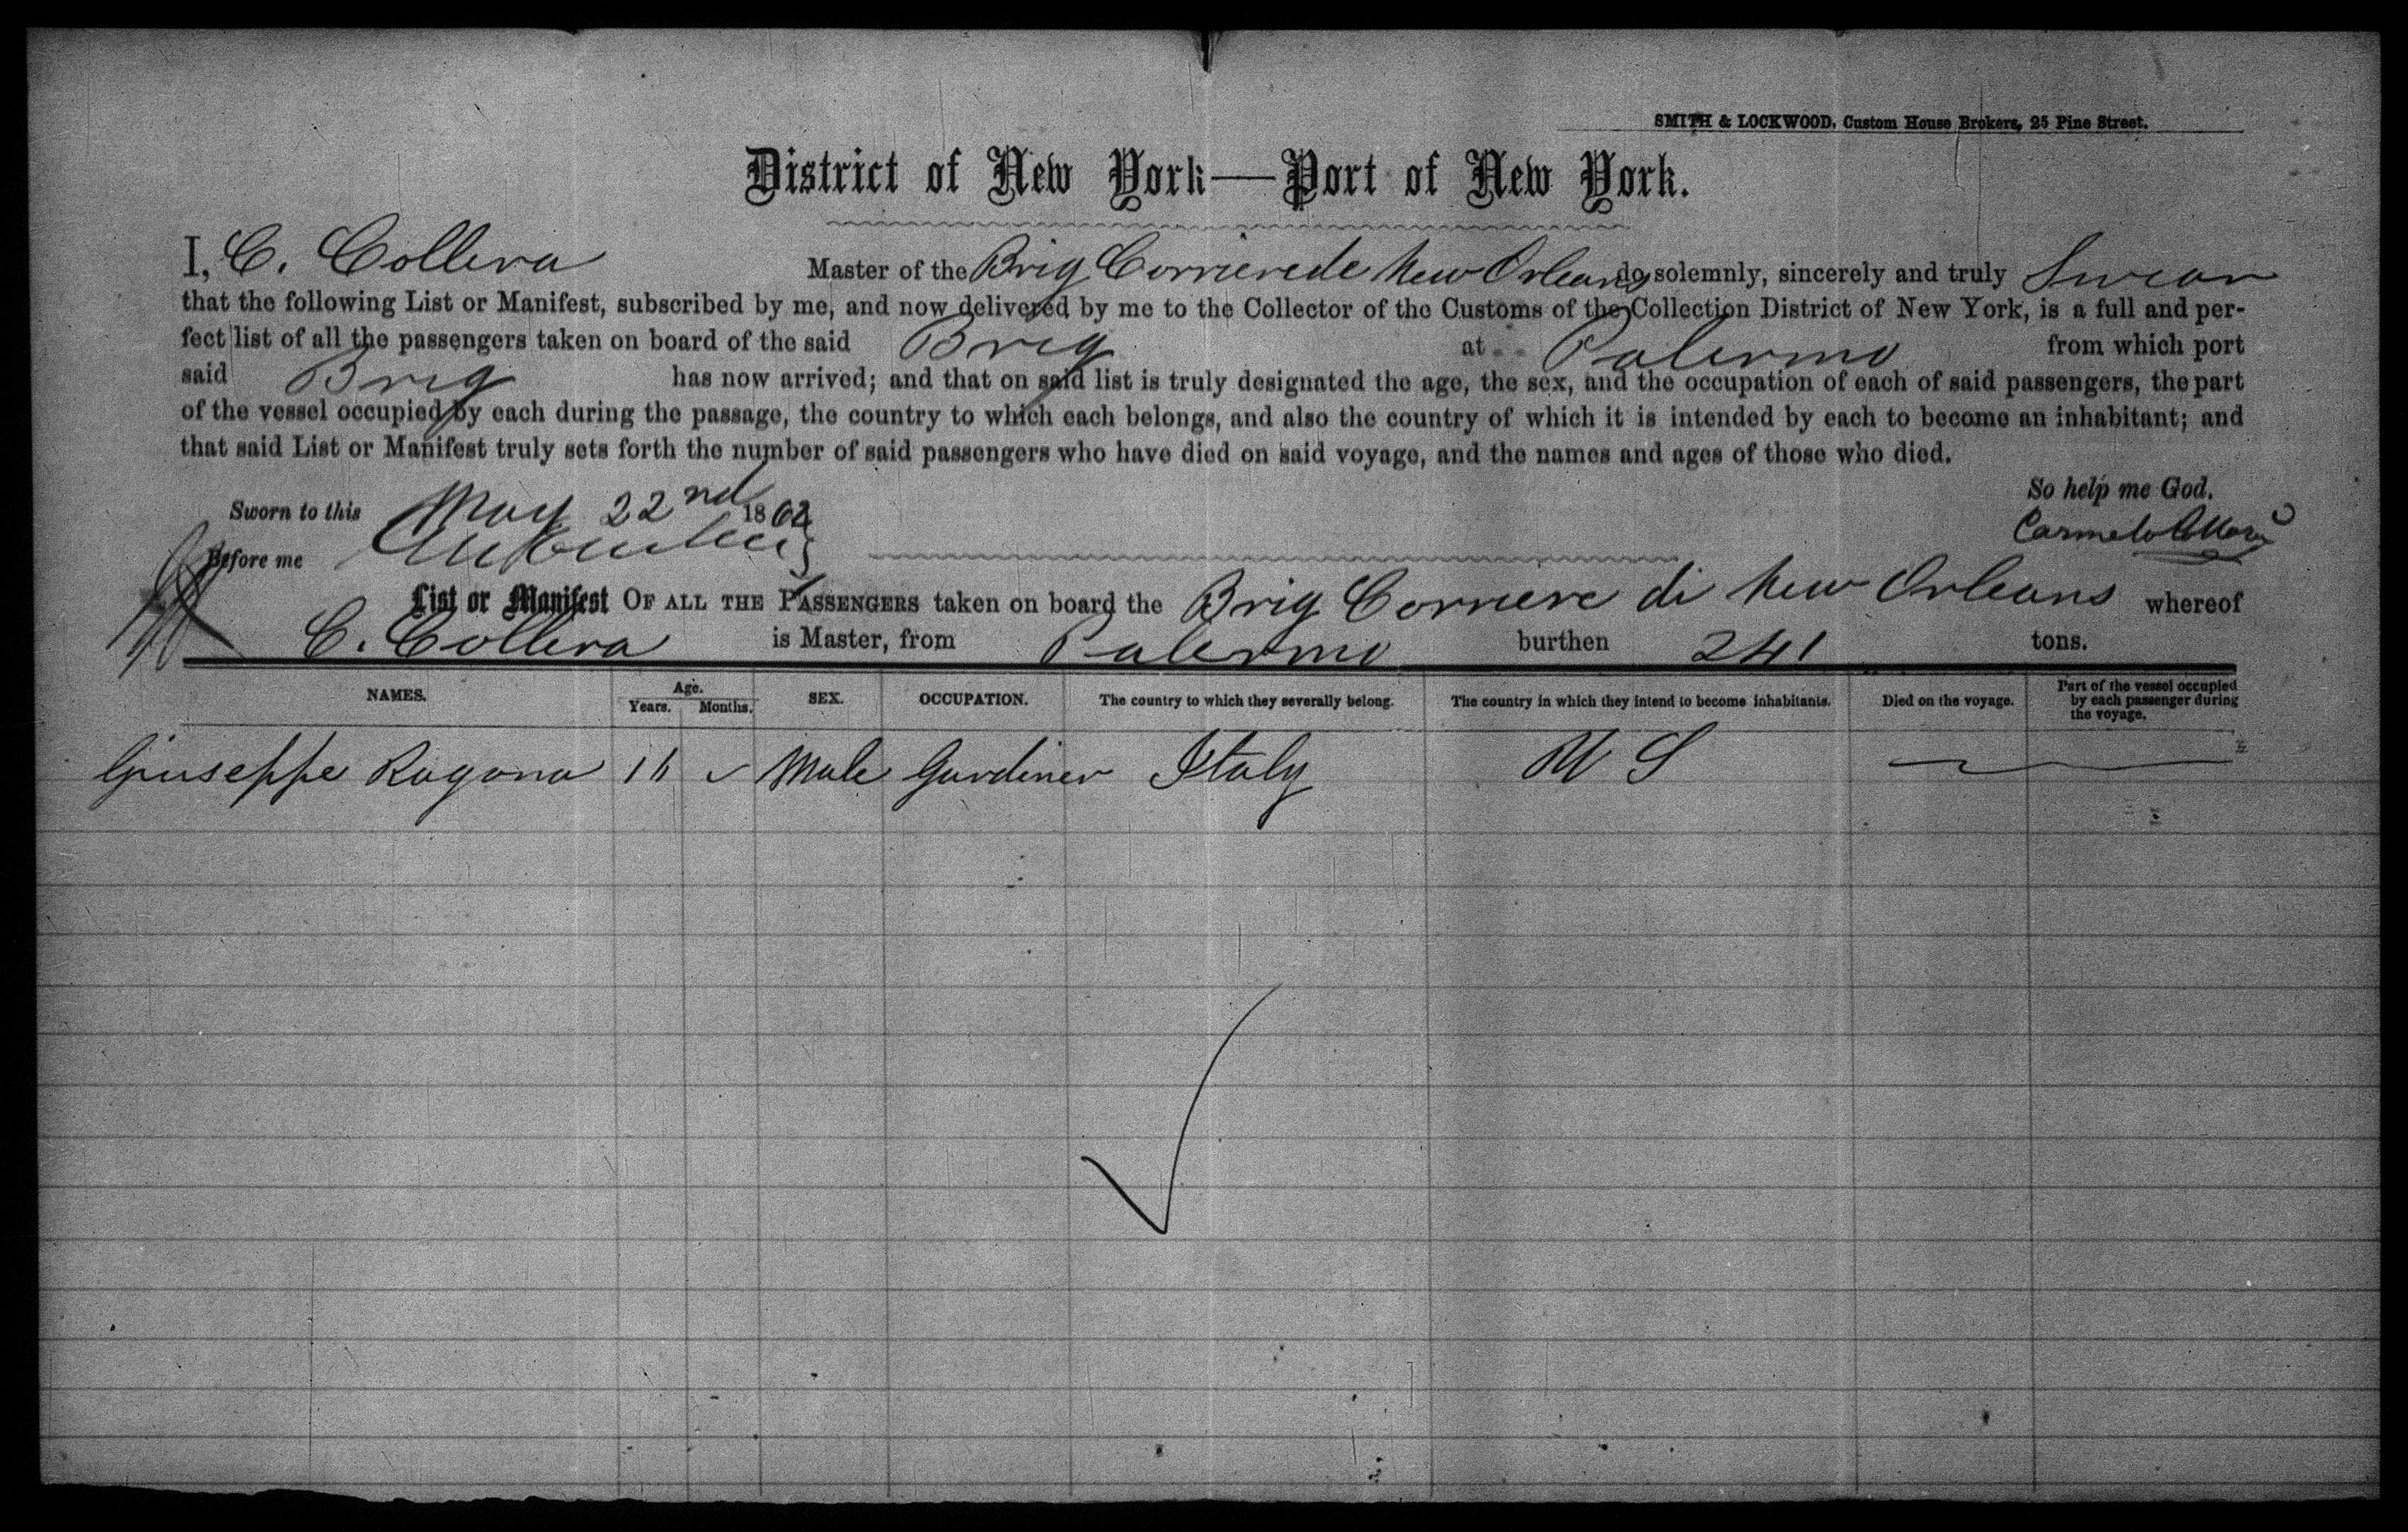 SMITH & LOCKWOOD, Custom House Brokers, 25 Pine Street.
District of New York—Port of New York.
I, C. Collera Master of the Brig Corriere de New Orleans do solemnly, sincerely and truly Swear
that the following List or Manifest, subscribed by me, and now delivered by me to the Collector of the Customs of the Collection District of New York, is a full and per-
fect list of all the passengers taken on board of the said Brig at Palermo from which port
said Brig has now arrived; and that on said list is truly designated the age, the sex, and the occupation of each of said passengers, the part
of the vessel occupied by each during the passage, the country to which each belongs, and also the country of which it is intended by each to become an inhabitant; and
that said List or Manifest truly sets forth the number of said passengers who have died on said voyage, and the names and ages of those who died.
So help me God.
Sworn to this May 22nd 1862
Carmelo
Before me
List or Manifest OF ALL THE PASSENGERS taken on board the Brig Corriere di New Orleans whereof
C. Collera is Master, from Palermo burthen 241 tons.
NAMES. Age. Years. Months. SEX. OCCUPATION. The country to which they severally belong. The country in which they intend to become inhabitants. Died on the voyage. Part of the vessel occupied by each passenger during the voyage.
Giuseppe Ragona 16 Male Gardiner Italy U S